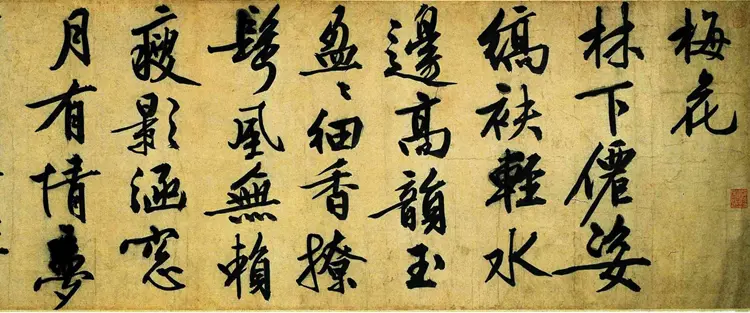 梅花
林下僊姿
縞袂輕水
邊高韻玉
盈〻細香撩
鬢風無賴
瘦影涵窓
月有情夢